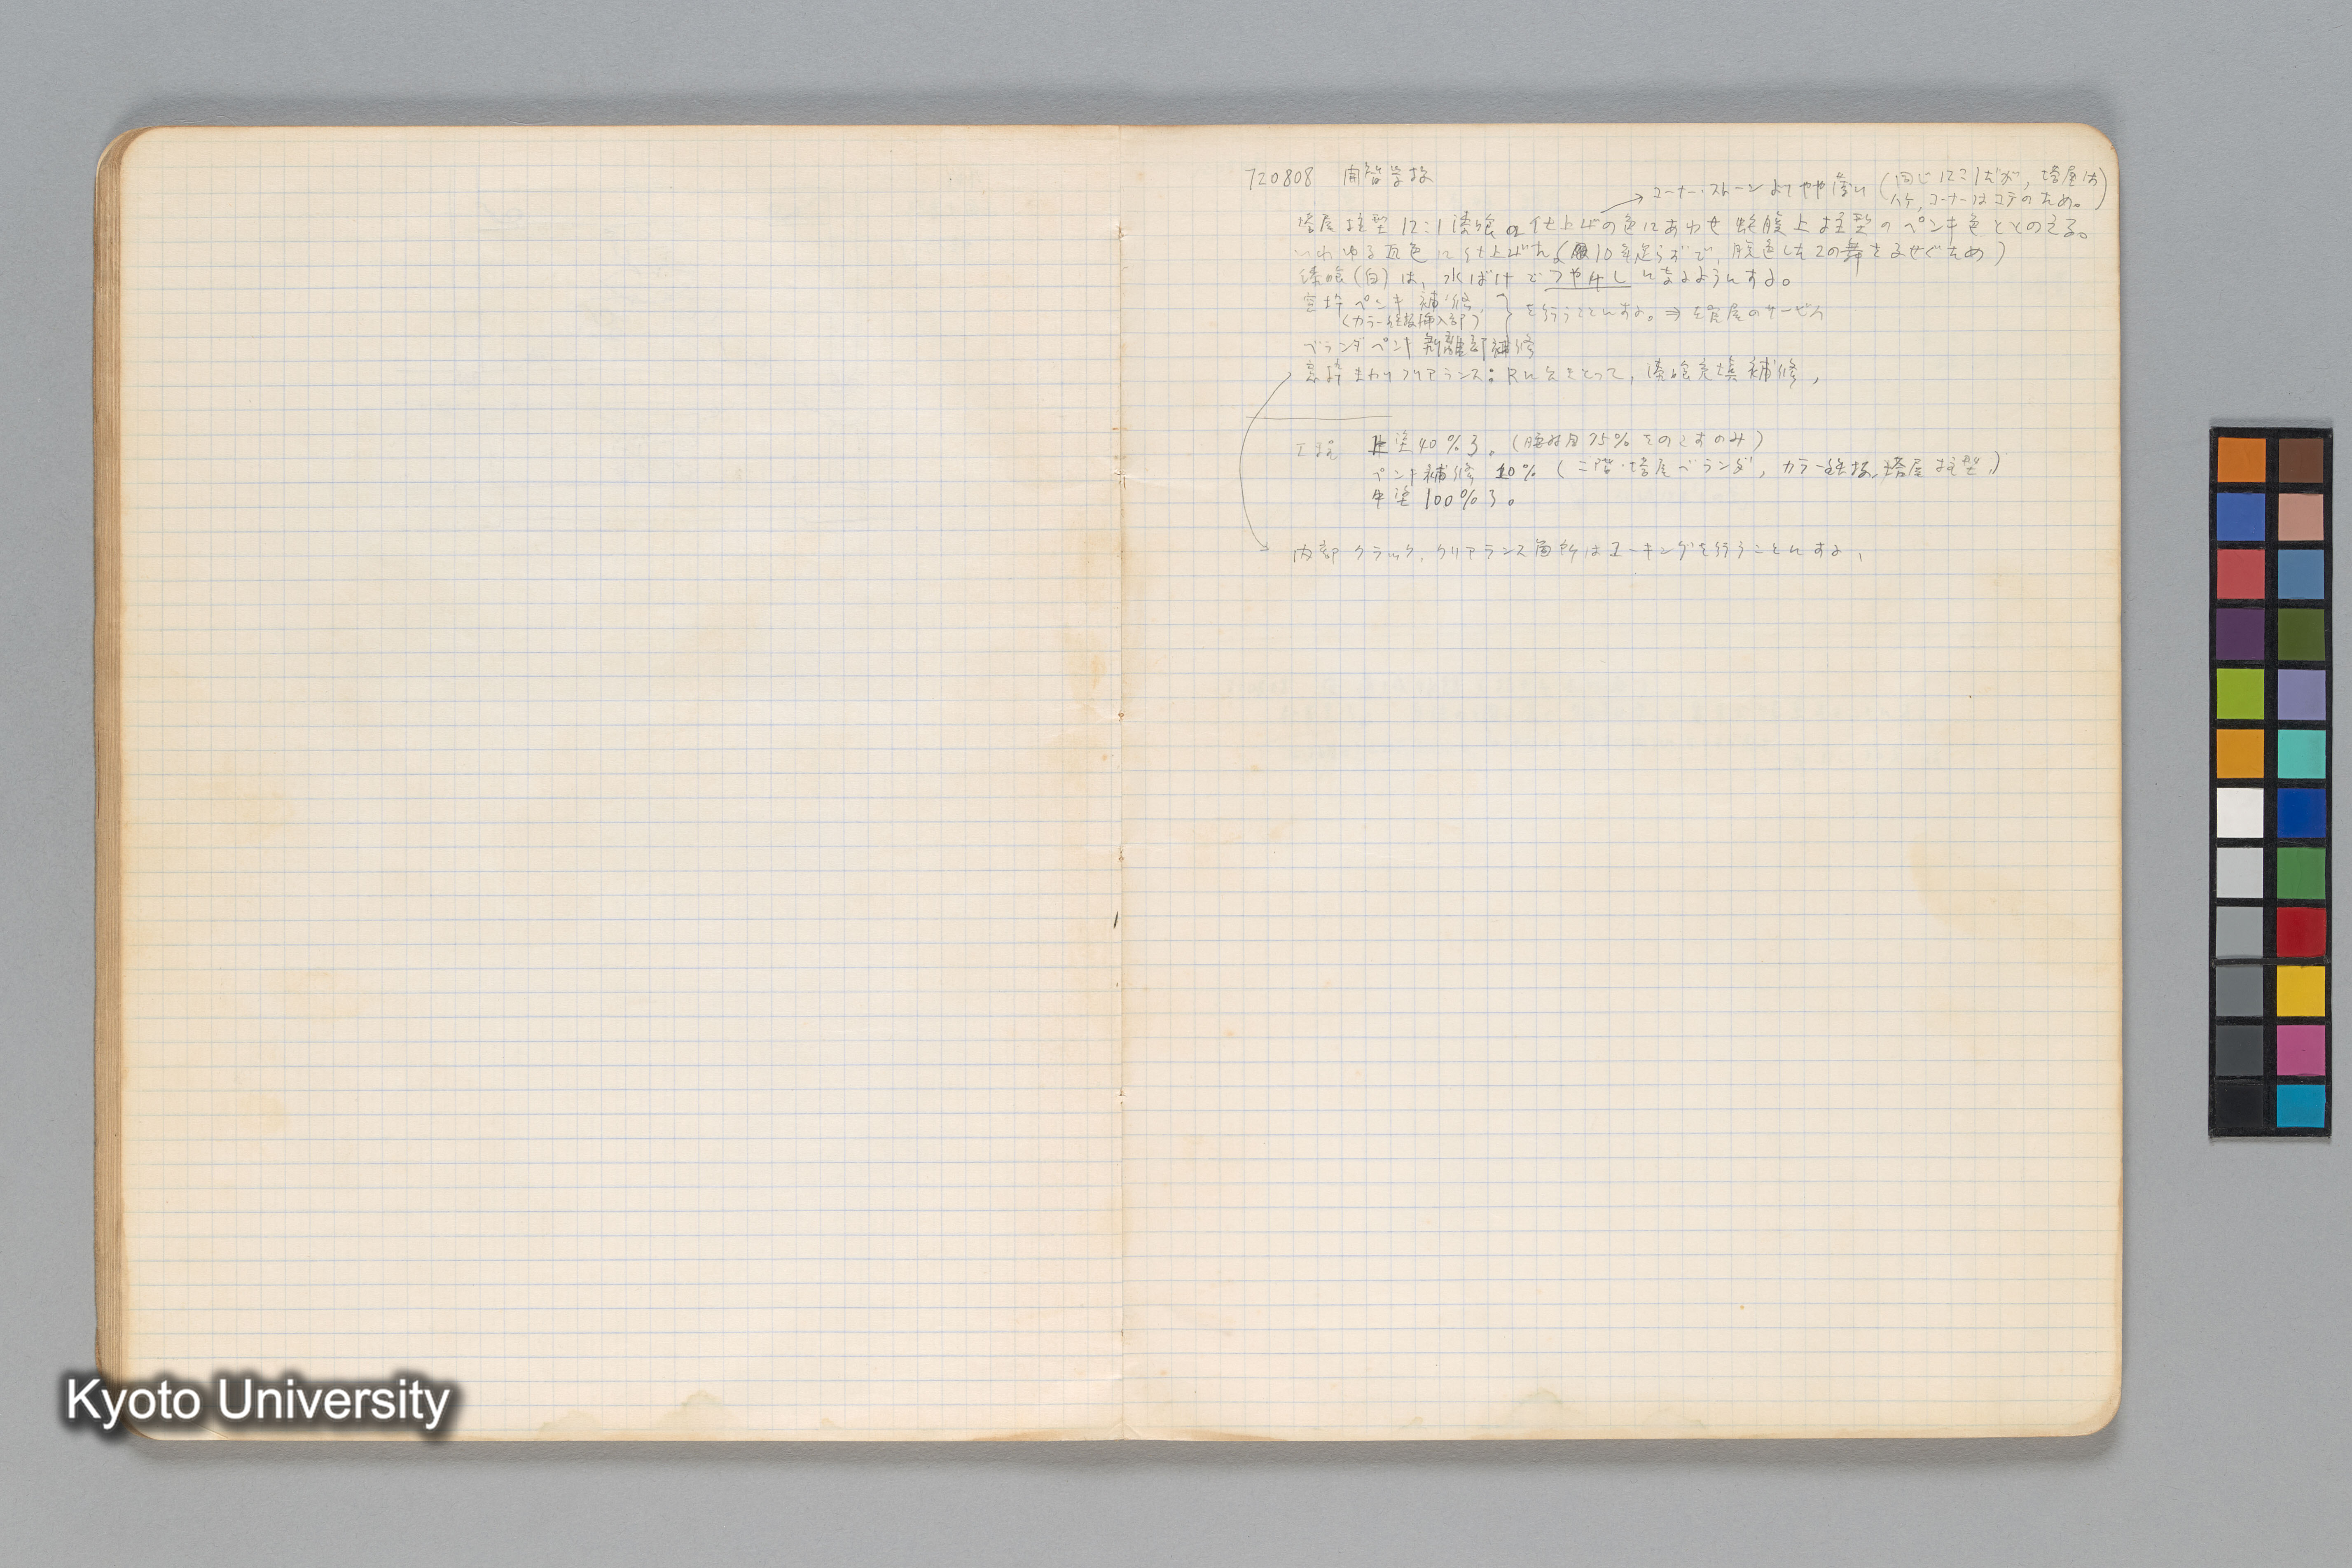 720808 開智学校
→ コーナー・ストーンよりやや薄い (同じ12:1だが, 塔屋は
ハケ, コーナーはコテのため。)
塔屋柱型 12:1漆喰の仕上げの色にあわせ 蛇腹上柱型のペンキ色ととのえる。
いわゆる瓦色に仕上げた (10年足らずで, 脱色した2の舞をふせぐため)
漆喰(白)は, 水ばけでつや出しになるようにする。
窓枠ペンキ補修,
(カラー鉄板挿入部)
を行うことにする。⇒ 左官屋のサービス
ベランダペンキ剥離部補修
窓枠まわりクリアランス: Rに公をとって, 漆喰充填補修,
工程 上塗40%了。(腰材目75%をのこすのみ)
ペンキ補修 10% (二階・塔屋ベランダ, カラー鉄板, 塔屋柱型,)
中塗100%了。
内部クラック, クリアランス箇所はコーキングを行うことにする,
Kyoto University